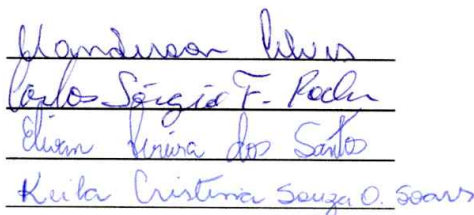 Wanderson Alves
Carlos Sérgio F. Rocha
Elivan Vieira dos Santos
Keila Cristina Souza O. Soares